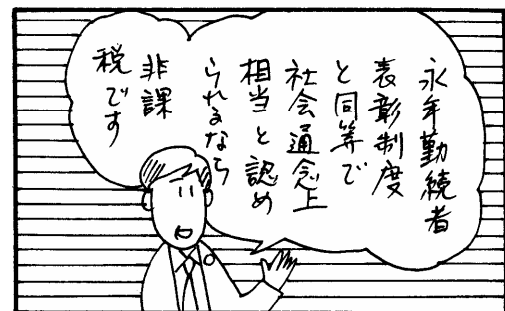 永年勤続者
表彰制度
と同等で
社会通念上
相当と認め
られるなら
非課
税です